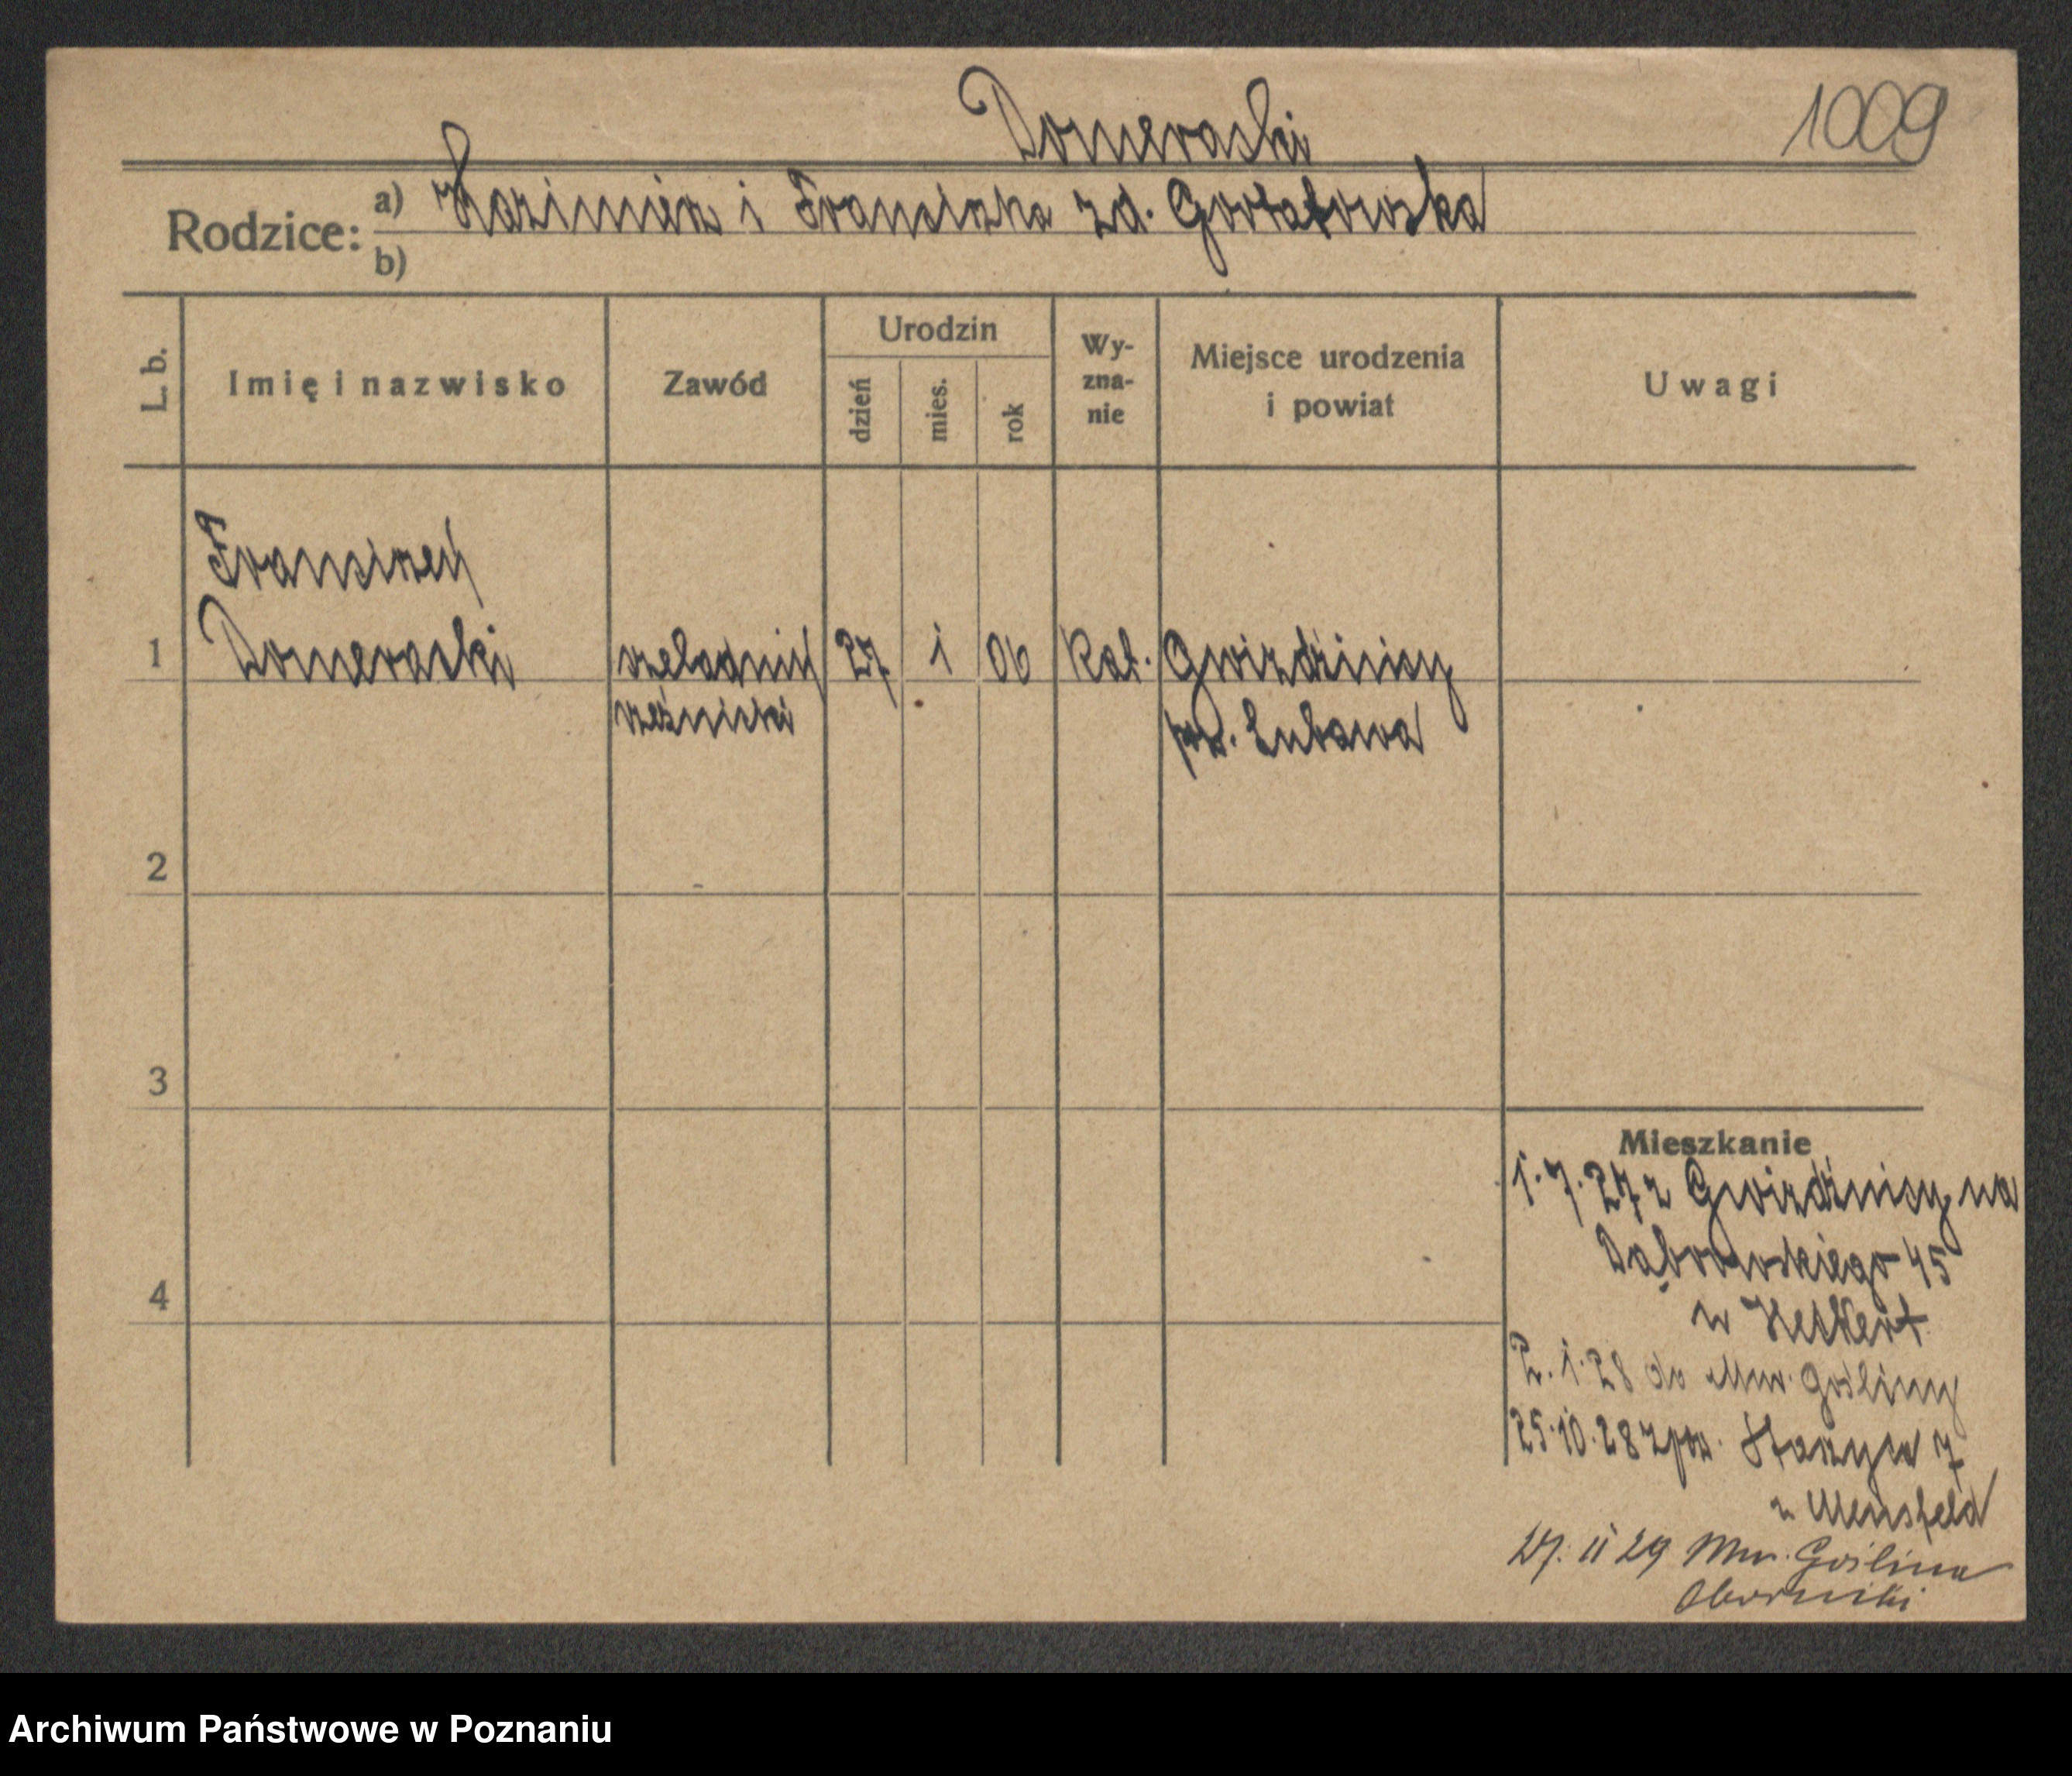 Domeracki
1009
Rodzice: a) Kazimierz i Franciszka zd. Gortatowska
b)
L. b.
Imię i nazwisko
Zawód
Urodzin
dzień
mies.
rok
Wy-
zna-
nie
Miejsce urodzenia
i powiat
Uwagi
Franciszek
1 Domeracki czeladnik 27 1 06 Kat. Gwizdziny
rzeźnicki pw. Lubawa
2
3
4
Mieszkanie
1.7.27 z na
Dąbrowskiego 45
u
2.1.28 do Mur. Gośliny
25.10.28 zpow. 7
u Mensfeld
27. II 29 Mur. Goślina
Oborniki
Archiwum Państwowe w Poznaniu